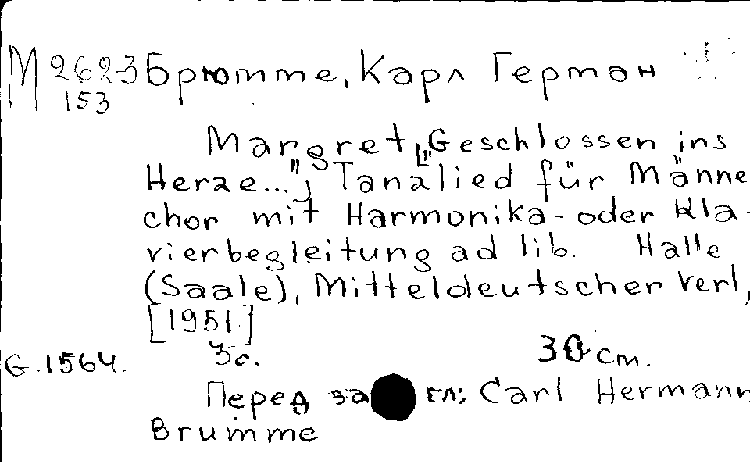 М 2623 Брюмме, Карл Герман
153
Margret „Geschlossen ins
Herze..."; Tanzlied für Männe
chor mit Harmonika- oder Kla-
vierbegleitung ad lib. Halle
(Saale), Mitteldeutscher Verl,
[1951.]
G.1564. 3с. 30 см.
Перед загл: Carl Hermann
Brumme